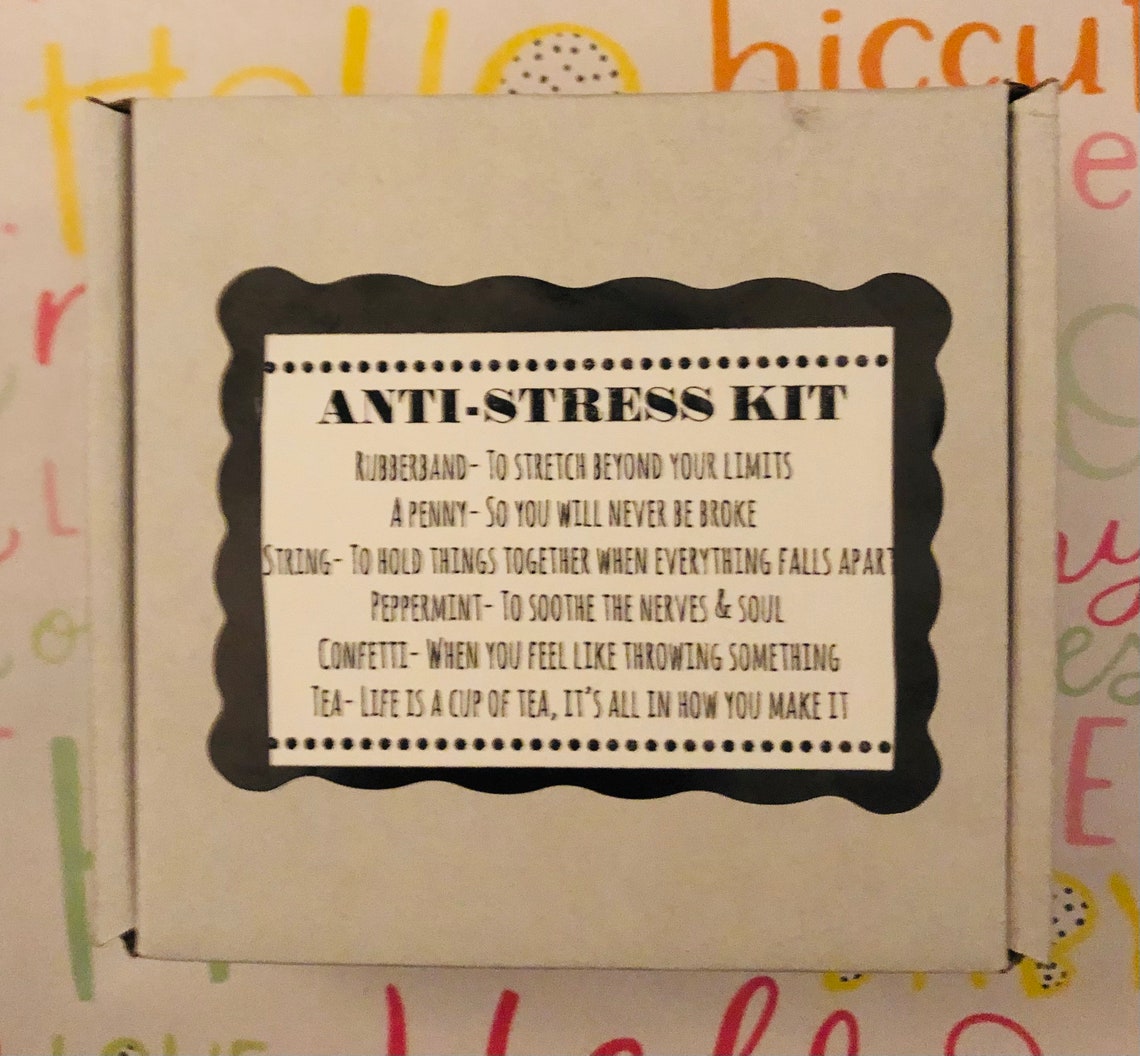 Hello
hiccup
ANTI-STRESS KIT
RUBBERBAND- TO STRETCH BEYOND YOUR LIMITS
A PENNY- SO YOU WILL NEVER BE BROKE
STRING- TO HOLD THINGS TOGETHER WHEN EVERYTHING FALLS APART
PEPPERMINT- TO SOOTHE THE NERVES & SOUL
CONFETTI- WHEN YOU FEEL LIKE THROWING SOMETHING
TEA- LIFE IS A CUP OF TEA, IT'S ALL IN HOW YOU MAKE IT
LOVE